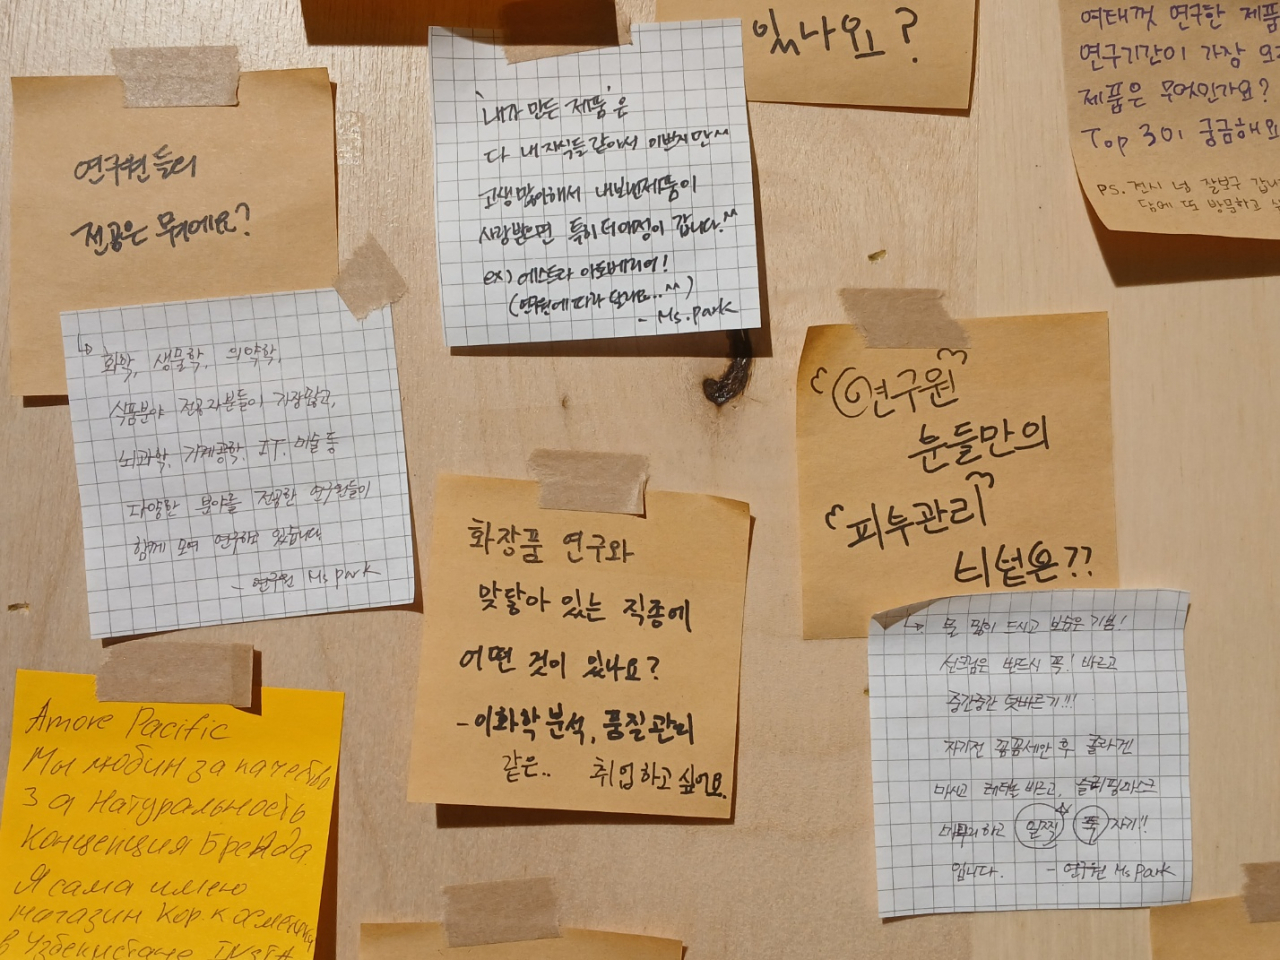 있나요?
여태껏 연구한 제품
연구기간이 가장 오
제품은 무엇인가요?
Top 3이 궁금해요
PS. 전시 넘 잘보구 갑니
담에 또 방문하고 싶
연구원들의
전공은 뭐에요?
'내가 만든 제품'은
다 내 자식들같아서 이쁘지만^^
고생많이해서 내보낸제품이
사랑받으면 특히 더 애정이 갑니다.^^
ex) 에스트라 아토베리어!
(연구원에 따라 달라요..^^)
- Ms. park
↳ 화학, 생물학, 의약학,
식품분야 전공자분들이 가장많고,
뇌과학, 기계공학, IT, 미술 등
다양한 분야를 전공한 연구원들이
함께 모여 연구하고 있습니다.
- 연구원 Ms park
"연구원"
분들만의
"피부관리"
비법은??
↳ 물 많이 드시고 보습은 기본!
선크림은 반드시 꼭! 바르고
중간중간 덧바르기!!!
자기전 꼼꼼세안 후 콜라겐
마시고 레티놀 바르고, 슬리핑마스크
마무리하고 일찍 푹 자기!!
입니다. - 연구원 Ms park
화장품 연구와
맞닿아 있는 직종에
어떤 것이 있나요?
- 이화학 분석, 품질관리
같은.. 취업하고 싶어요.
Amore Pacific
Мы любин за качество
За натуральность
концепция Бренда
Я сама имею
магазин Кор. космети
в Узбекистане INSTA